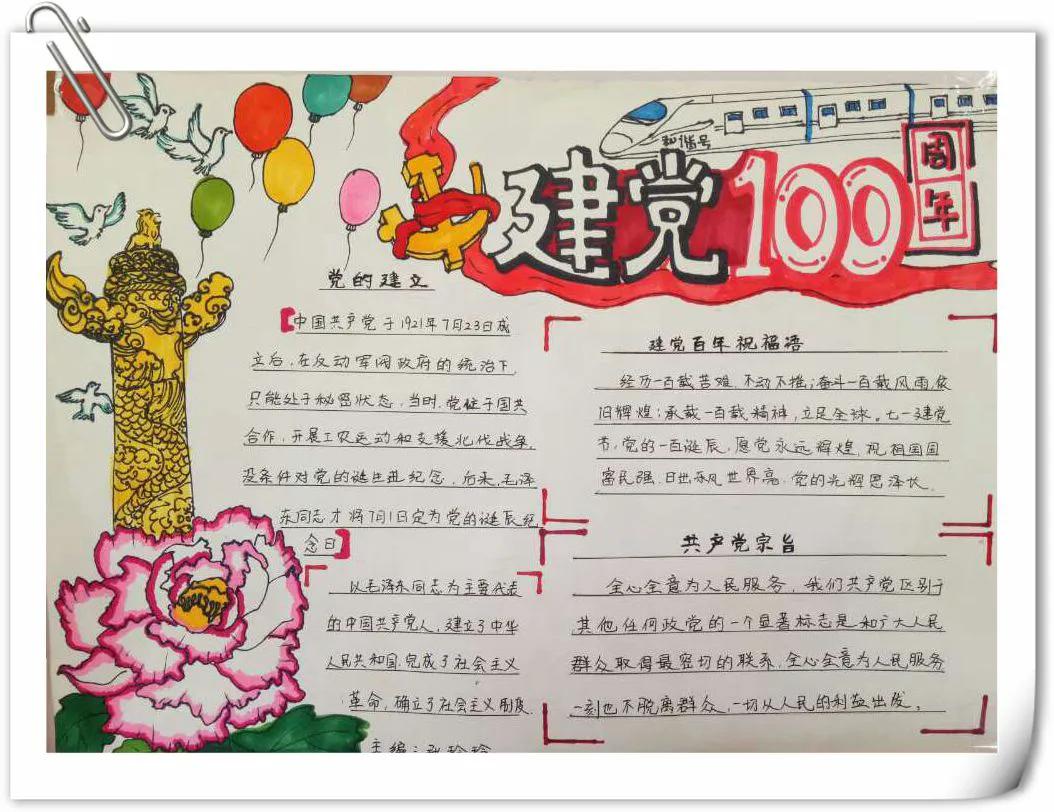 和谐号
建党100周年
党的建立
中国共产党于1921年7月23日成
立后,在反动军阀政府的统治下,
只能处于秘密状态.当时,党忙于国共
合作,开展工农运动和支援北伐战争,
没条件对党的诞生进纪念,后来,毛泽
东同志才将7月1日定为党的诞辰纪
念日
以毛泽东同志为主要代表
的中国共产党人,建立了中华
人民共和国,完成了社会主义
革命,确立了社会主义制度.
主编:张玲玲
建党百年祝福语
经历一百载苦难,不动不摇;奋斗一百载风雨,依
旧辉煌;承载一百载精神,立足全球.七一建党
节,党的一百诞辰,愿党永远辉煌,祝祖国国
富民强,日世飘世界亮,党的光辉恩泽长.
共产党宗旨
全心全意为人民服务,我们共产党区别于
其他任何政党的一个显著标志是和广大人民
群众取得最密切的联系,全心全意为人民服务
一刻也不脱离群众,一切从人民的利益出发。